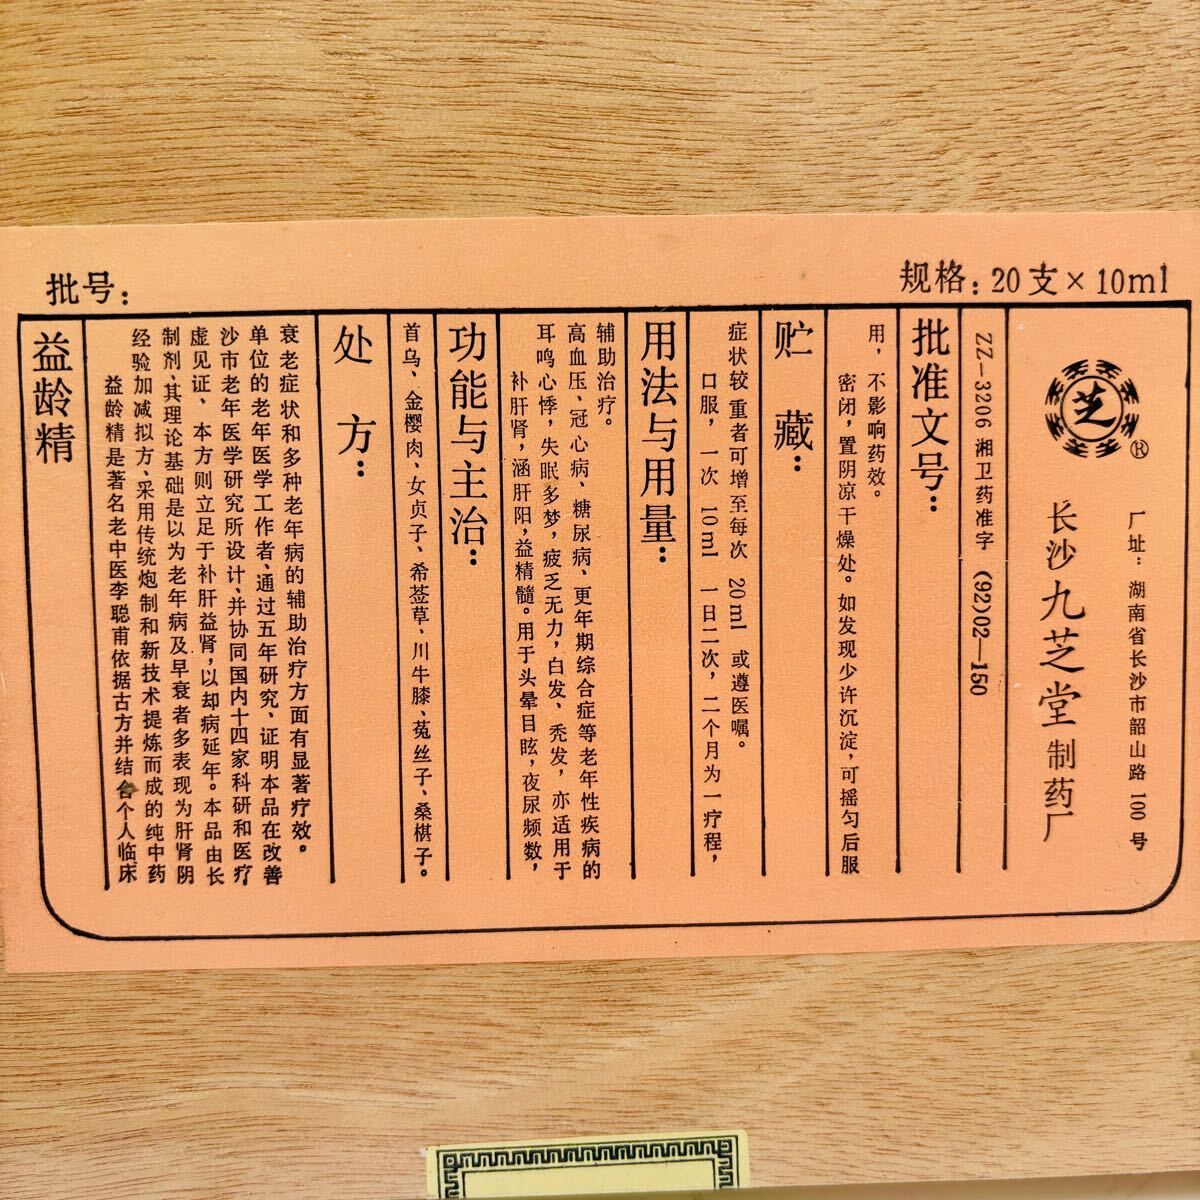 批号：
规格：20支×10ml
益龄精
益龄精是著名老中医李聪甫依据古方并结合个人临床
经验加减拟方、采用传统炮制和新技术提炼而成的纯中药
制剂、其理论基础是以为老年病及早衰者多表现为肝肾阴
虚见证、本方则立足于补肝益肾，以却病延年。本品由长
沙市老年医学研究所设计、并协同国内十四家科研和医疗
单位的老年医学工作者、通过五年研究、证明本品在改善
衰老症状和多种老年病的辅助治疗方面有显著疗效。
处方：
首乌、金樱肉、女贞子、希莶草、川牛膝、菟丝子、桑椹子。
功能与主治：
补肝肾，涵肝阳，益精髓。用于头晕目眩，夜尿频数，
耳鸣心悸，失眠多梦，疲乏无力，白发、秃发，亦适用于
高血压、冠心病、糖尿病、更年期综合症等老年性疾病的
辅助治疗。
用法与用量：
口服，一次 10ml 一日二次，二个月为一疗程，
症状较重者可增至每次 20ml 或遵医嘱。
贮藏：
密闭，置阴凉干燥处。如发现少许沉淀，可摇匀后服
用，不影响药效。
批准文号：
ZZ—3206 湘卫药准字 (92)02—150
芝®
长沙九芝堂制药厂
厂址：湖南省长沙市韶山路 100 号